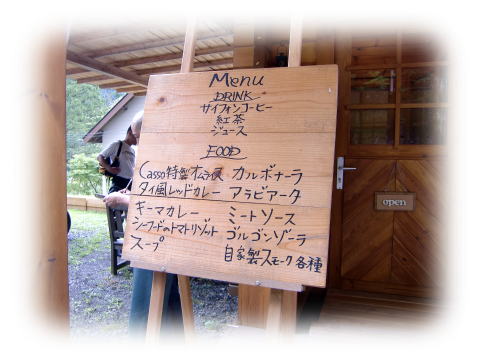 Menu
DRINK
サイフォンコーヒー
紅茶
ジュース
FOOD
Casso特製オムライス
タイ風レッドカレー
キーマカレー
シーフードのトマトリゾット
スープ
カルボナーラ
アラビアータ
ミートソース
ゴルゴンゾーラ
自家製スモーク各種
open